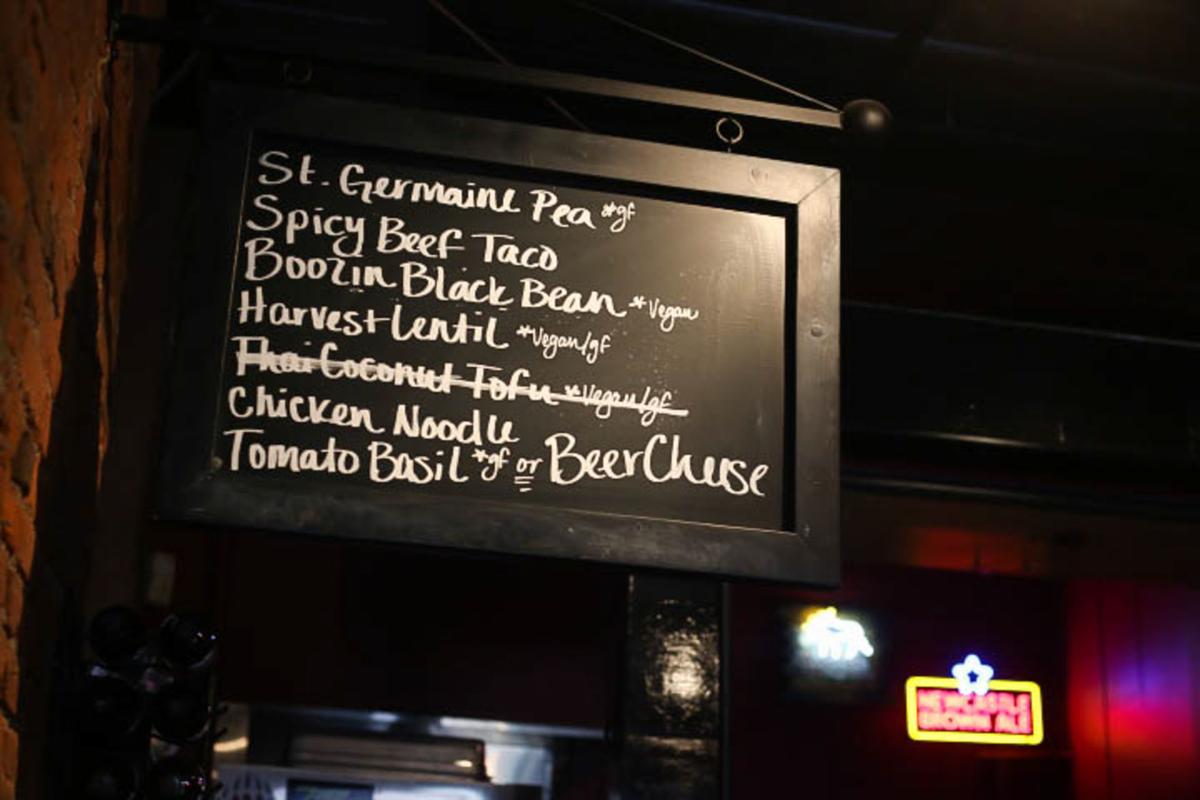 St. Germaine Pea *gf
Spicy Beef Taco
Boozin Black Bean *Vegan
Harvest Lentil *Vegan/gf
Thai Coconut Tofu *Vegan/gf
Chicken Noodle
Tomato Basil *gf or Beer Chuse
NEWCASTLE
BROWN ALE